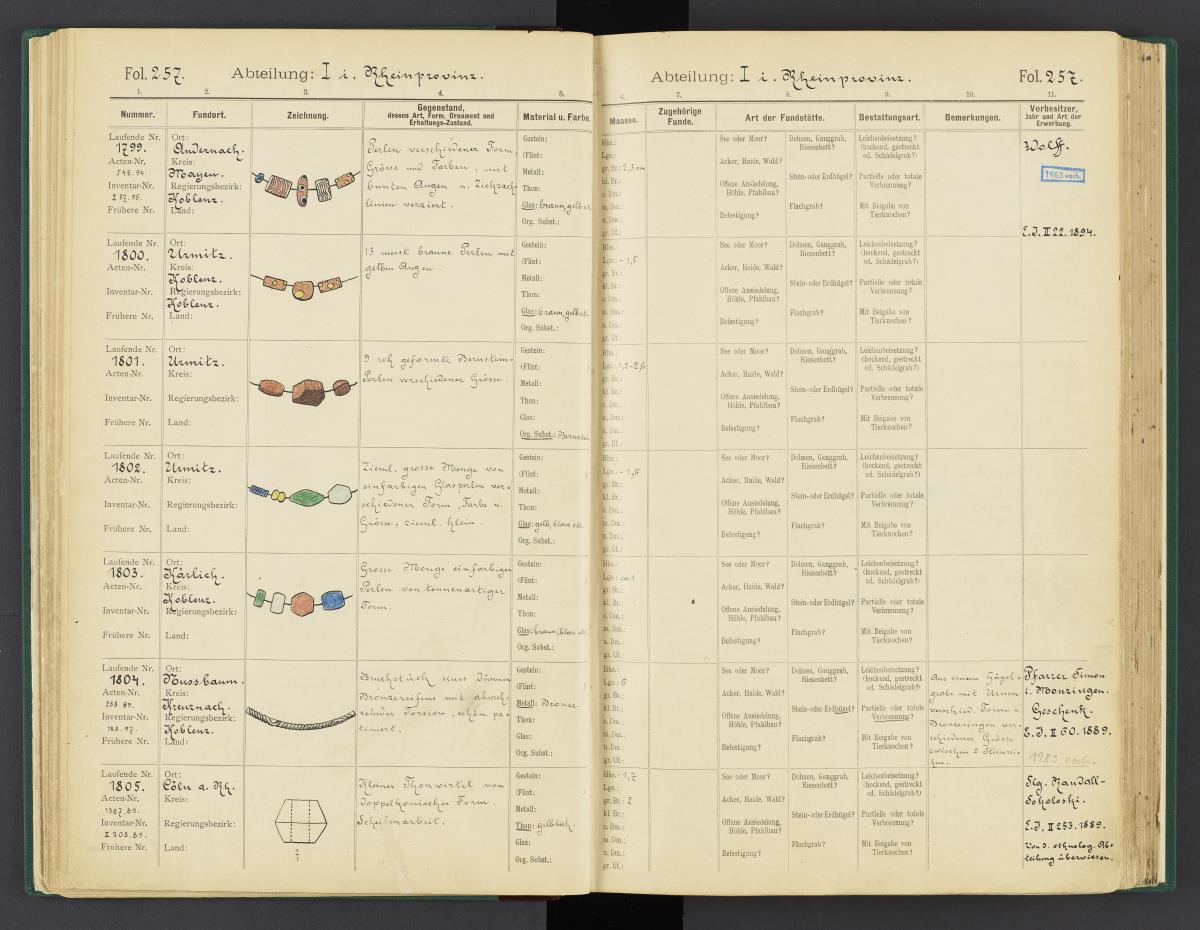 Fol. 257. Abteilung: I i. Rheinprovinz.
1. 2. 3. 4. 5.
Nummer. Fundort. Zeichnung. Gegenstand, dessen Art, Form, Ornament und Erhaltungs-Zustand. Material u. Farbe.
Laufende Nr. 1799.
Acten-Nr. 545.94.
Inventar-Nr. II 57. 95.
Frühere Nr.
Ort: Andernach.
Kreis: Mayen.
Regierungsbezirk: Koblenz.
Land:
Perlen verschiedener Form,
Grösse und Farben, mit
bunten Augen u. Zickzack
linien verziert.
Gestein:
(Flint: )
Metall:
Thon:
Glas: braun, gelb etc.
Org. Subst.:
Laufende Nr. 1800.
Acten-Nr.
Inventar-Nr.
Frühere Nr.
Ort: Urmitz.
Kreis: Koblenz.
Regierungsbezirk: Koblenz.
Land:
13 meist braune Perlen mit
gelben Augen.
Gestein:
(Flint: )
Metall:
Thon:
Glas: braun, gelb etc.
Org. Subst.:
Laufende Nr. 1801.
Acten-Nr.
Inventar-Nr.
Frühere Nr.
Ort: Urmitz.
Kreis:
Regierungsbezirk:
Land:
9 roh geformte Bernstein-
Perlen verschiedener Grösse.
Gestein:
(Flint: )
Metall:
Thon:
Glas:
Org. Subst.: Bernstein
Laufende Nr. 1802.
Acten-Nr.
Inventar-Nr.
Frühere Nr.
Ort: Urmitz.
Kreis:
Regierungsbezirk:
Land:
Zieml. grosse Menge von
einfarbigen Glasperlen ver-
schiedener Form, Farbe u.
Grösse, zieml. klein.
Gestein:
(Flint: )
Metall:
Thon:
Glas: gelb, blau etc.
Org. Subst.:
Laufende Nr. 1803.
Acten-Nr.
Inventar-Nr.
Frühere Nr.
Ort: Kärlich.
Kreis: Koblenz.
Regierungsbezirk:
Land:
Grosse Menge einfarbiger
Perlen von tonnenartiger
Form.
Gestein:
(Flint: )
Metall:
Thon:
Glas: braun, blau etc
Org. Subst.:
Laufende Nr. 1804.
Acten-Nr. 288.89.
Inventar-Nr.
Frühere Nr.
Ort: Nussbaum.
Kreis: Kreuznach.
Regierungsbezirk: Koblenz.
Land:
Bruchstück eines dünnen
Bronzereifens mit abwech-
selnder Torsion, schön pa-
tiniert.
Gestein:
(Flint: )
Metall: Bronze
Thon:
Glas:
Org. Subst.:
Laufende Nr. 1805.
Acten-Nr. 1367.89.
Inventar-Nr. II 208.89.
Frühere Nr.
Ort: Cöln a. Rh.
Kreis:
Regierungsbezirk:
Land:
1/1
Kleiner Thonwirtel von
doppelkonischer Form.
Scheibenarbeit.
Gestein:
(Flint: )
Metall:
Thon: gelblich.
Glas:
Org. Subst.:
Abteilung: I i. Rheinprovinz. Fol. 257.
6. 7. 8. 9. 10. 11.
Maasse. Zugehörige Funde. Art der Fundstätte. Bestattungsart. Bemerkungen. Vorbesitzer, Jahr und Art der Erwerbung.
Hhe.:
Lge.:
gr. Br.: 2,3 cm
kl. Br.:
o. Dm.:
m. Dm.:
u. Dm.:
gr. Uf.:
See oder Moor?
Acker, Haide, Wald?
Offene Ansiedelung, Höhle, Pfahlbau?
Befestigung?
Dolmen, Ganggrab, Riesenbett?
Stein- oder Erdhügel?
Flachgrab?
Leichenbeisetzung? (hockend, gestreckt od. Schädelgrab?)
Partielle oder totale Verbrennung?
Mit Beigabe von Tierknochen?
Wolff.
1963 vorh.
E.J. II 22. 1894.
Hhe.:
Lge.: - 1,5
gr. Br.:
kl. Br.:
o. Dm.:
m. Dm.:
u. Dm.:
gr. Uf.:
See oder Moor?
Acker, Haide, Wald?
Offene Ansiedelung, Höhle, Pfahlbau?
Befestigung?
Dolmen, Ganggrab, Riesenbett?
Stein- oder Erdhügel?
Flachgrab?
Leichenbeisetzung? (hockend, gestreckt od. Schädelgrab?)
Partielle oder totale Verbrennung?
Mit Beigabe von Tierknochen?
Hhe.:
Lge.: 1,2-2,6
gr. Br.:
kl. Br.:
o. Dm.:
m. Dm.:
u. Dm.:
gr. Uf.:
See oder Moor?
Acker, Haide, Wald?
Offene Ansiedelung, Höhle, Pfahlbau?
Befestigung?
Dolmen, Ganggrab, Riesenbett?
Stein- oder Erdhügel?
Flachgrab?
Leichenbeisetzung? (hockend, gestreckt od. Schädelgrab?)
Partielle oder totale Verbrennung?
Mit Beigabe von Tierknochen?
Hhe.:
Lge.: - 1,6
gr. Br.:
kl. Br.:
o. Dm.:
m. Dm.:
u. Dm.:
gr. Uf.:
See oder Moor?
Acker, Haide, Wald?
Offene Ansiedelung, Höhle, Pfahlbau?
Befestigung?
Dolmen, Ganggrab, Riesenbett?
Stein- oder Erdhügel?
Flachgrab?
Leichenbeisetzung? (hockend, gestreckt od. Schädelgrab?)
Partielle oder totale Verbrennung?
Mit Beigabe von Tierknochen?
Hhe.:
Lge.: ca. 1
gr. Br.:
kl. Br.:
o. Dm.:
m. Dm.:
u. Dm.:
gr. Uf.:
See oder Moor?
Acker, Haide, Wald?
Offene Ansiedelung, Höhle, Pfahlbau?
Befestigung?
Dolmen, Ganggrab, Riesenbett?
Stein- oder Erdhügel?
Flachgrab?
Leichenbeisetzung? (hockend, gestreckt od. Schädelgrab?)
Partielle oder totale Verbrennung?
Mit Beigabe von Tierknochen?
Hhe.:
Lge.: 6
gr. Br.:
kl. Br.:
o. Dm.:
m. Dm.:
u. Dm.:
gr. Uf.:
See oder Moor?
Acker, Haide, Wald?
Offene Ansiedelung, Höhle, Pfahlbau?
Befestigung?
Dolmen, Ganggrab, Riesenbett?
Stein- oder Erdhügel?
Flachgrab?
Leichenbeisetzung? (hockend, gestreckt od. Schädelgrab?)
Partielle oder totale Verbrennung?
Mit Beigabe von Tierknochen?
Aus einem Hügel-
grabe mit Urnen
verschied. Form u.
Bronzeringen ver-
schiedener Grösse
zwischen 2 Steinrei-
hen.
Pfarrer Simon
i. Monzingen.
Geschenk.
E.J. II 60. 1889.
1983 vorh.
Hhe.: 1,7
Lge.:
gr. Br.: 2
kl. Br.:
o. Dm.:
m. Dm.:
u. Dm.:
gr. Uf.:
See oder Moor?
Acker, Haide, Wald?
Offene Ansiedelung, Höhle, Pfahlbau?
Befestigung?
Dolmen, Ganggrab, Riesenbett?
Stein- oder Erdhügel?
Flachgrab?
Leichenbeisetzung? (hockend, gestreckt od. Schädelgrab?)
Partielle oder totale Verbrennung?
Mit Beigabe von Tierknochen?
Slg. Randall-
Sokoloski.
E.J. II 253. 1889.
Von d. ethnolog. Ab-
teilung überwiesen.